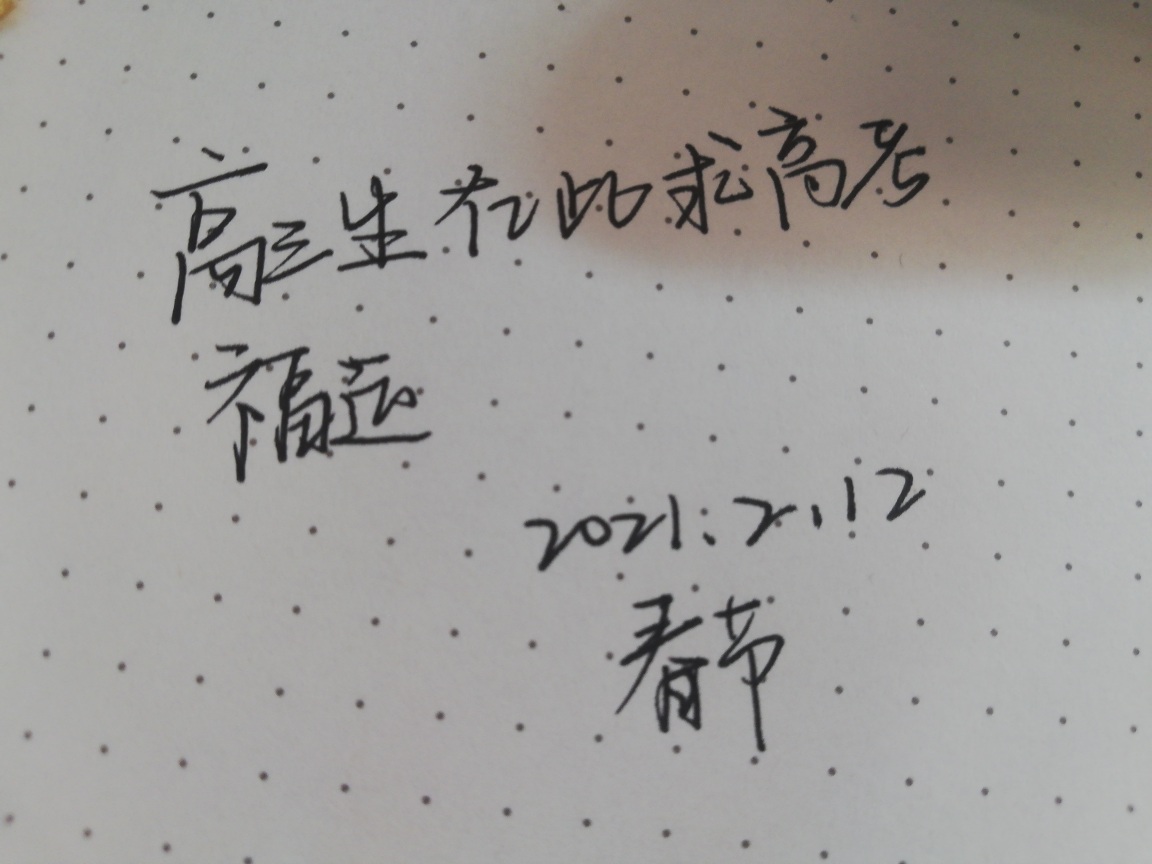 高三生在此求高考
福运
2021.2.12
春节